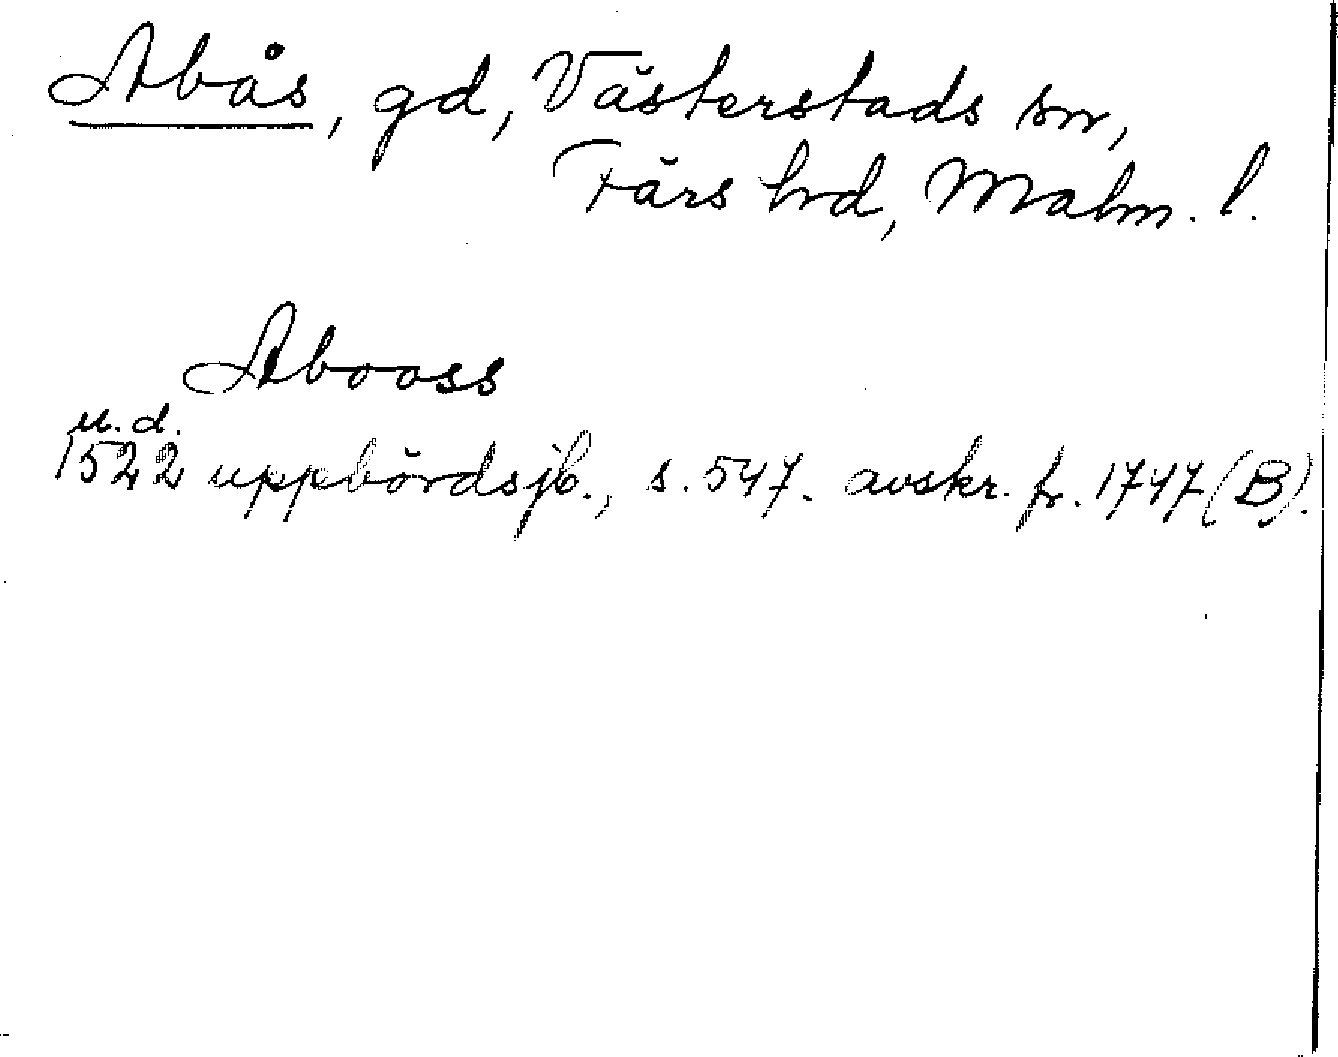 Abås, gd, Västerstads sn,
Färs hrd, Malm. l.
Abooss
u. d.
1522 uppbördsjb., s. 547. avskr. fr. 1747 (B).